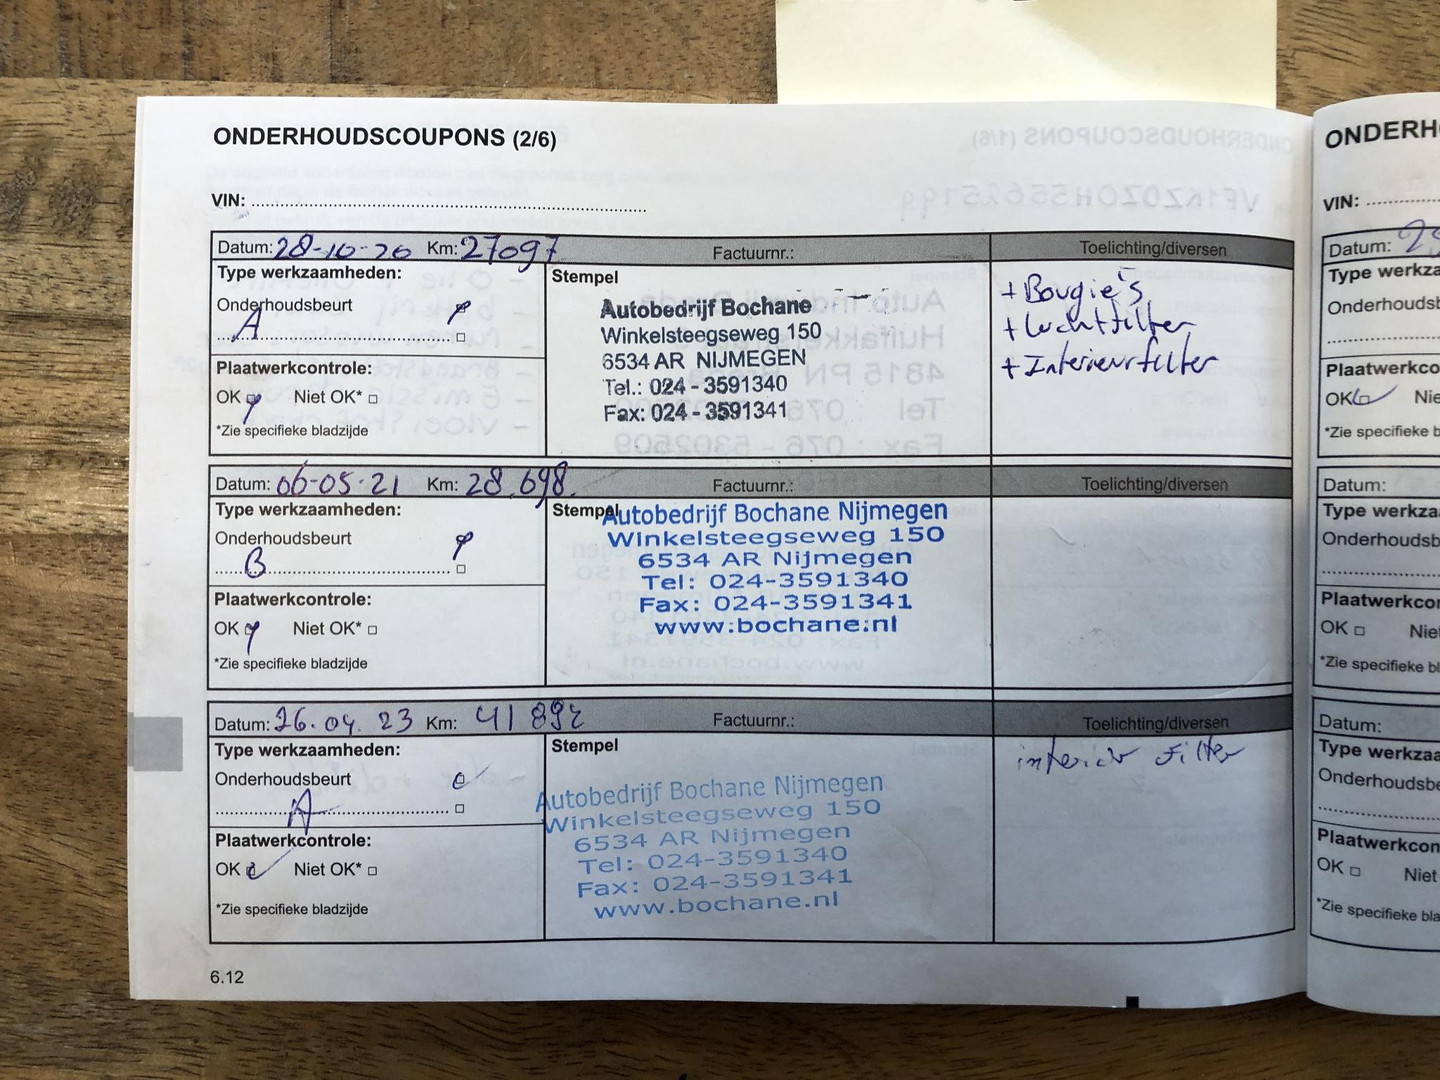 ONDERHOUDSCOUPONS (2/6)
VIN:
Datum: 28-10-20 Km: 27097 Factuurnr.: Toelichting/diversen
Type werkzaamheden:
Onderhoudsbeurt
A
Plaatwerkcontrole:
OK Niet OK*
*Zie specifieke bladzijde
Stempel
Autobedrijf Bochane
Winkelsteegseweg 150
6534 AR NIJMEGEN
Tel.: 024 - 3591340
Fax: 024 - 3591341
+ Bougie's
+ Luchtfilter
+ Interieurfilter
Datum: 06-05-21 Km: 28.698. Factuurnr.: Toelichting/diversen
Type werkzaamheden:
Onderhoudsbeurt
B
Plaatwerkcontrole:
OK Niet OK*
*Zie specifieke bladzijde
Stempel
Autobedrijf Bochane Nijmegen
Winkelsteegseweg 150
6534 AR Nijmegen
Tel: 024-3591340
Fax: 024-3591341
www.bochane.nl
Datum: 26.04.23 Km: 41892 Factuurnr.: Toelichting/diversen
Type werkzaamheden:
Onderhoudsbeurt
A
Plaatwerkcontrole:
OK Niet OK*
*Zie specifieke bladzijde
Stempel
Autobedrijf Bochane Nijmegen
Winkelsteegseweg 150
6534 AR Nijmegen
Tel: 024-3591340
Fax: 024-3591341
www.bochane.nl
interieur Filter
6.12
ONDERH
VIN:
Datum: 2
Type werkza
Onderhoudsb
Plaatwerkco
OK Nie
*Zie specifieke b
Datum:
Type werkza
Onderhoudsb
Plaatwerkcor
OK Nie
*Zie specifieke bl
Datum:
Type werkza
Onderhoudsbe
Plaatwerkcon
OK Niet
*Zie specifieke bla